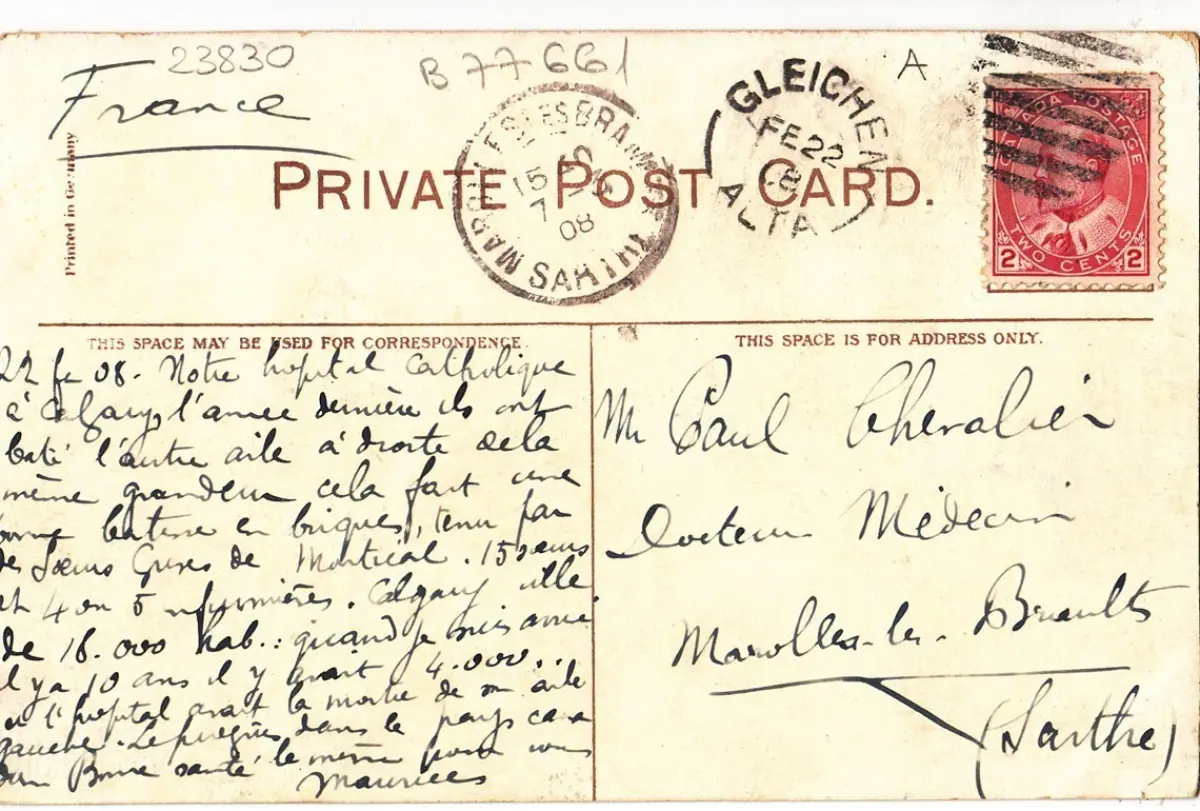 23830
B 77661
A
France
Printed in Germany
PRIVATE POST CARD.
MAROLLES LES BRAU
15
7
08
SARTHE
GLEICHEN
FE 22
08
ALTA
CANADA POSTAGE
2 TWO CENTS 2
THIS SPACE MAY BE USED FOR CORRESPONDENCE.
THIS SPACE IS FOR ADDRESS ONLY.
22 fe 08. Notre hopital catholique
à Calgary, l'année dernière ils ont
bati l'autre aile à droite de la
même grandeur cela fait une
bonne batisse en briques, tenu par
des Sœurs Grises de Montreal. 15 sœurs
et 4 ou 5 infirmières. Calgary ville
de 18.000 hab.: quand je suis arrivé
il y a 10 ans il y avait 4.000...
et l'hopital avait la moitié de son aile
gauche. Le progrès dans le pays
Bonne santé le même pour vous
Maurices
Mr Paul Chevalier
Docteur Médecin
Marolles-les-Braults
(Sarthe)